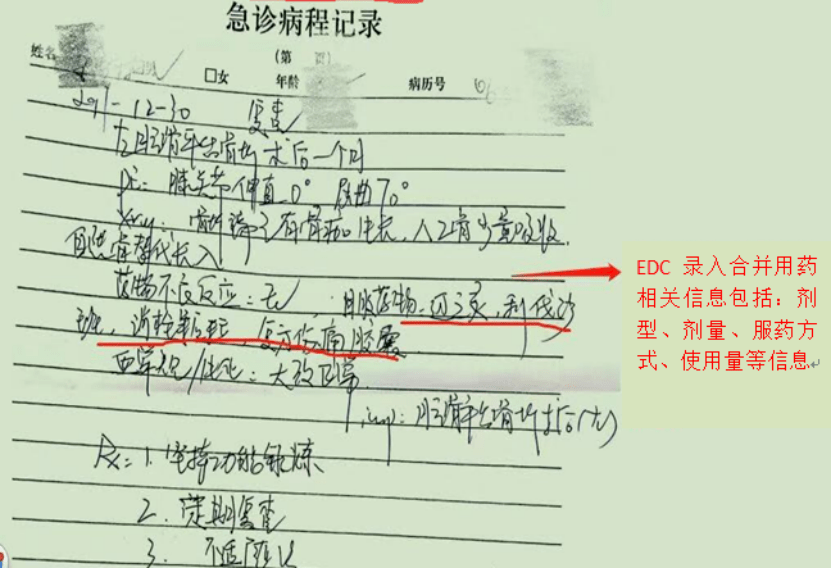 急诊病程记录
(第 页)
姓名 □女 年龄 病历号
-12-30 复查
左胫骨平台骨折术后一个月
PE: 膝关节伸直0° 屈曲70°
Xray: 骨折端已有骨痂生长,人工骨少量吸收,
自体骨替代长入
药物不良反应:无 目服药物:迈之灵,利伐沙
班,消栓,复方伤痛胶囊
血常规/生化:大致正常.
imp: 胫骨平台骨折术后(左)
Rx: 1. 坚持功能锻炼
2. 定期复查
3. 不适随诊
EDC 录入合并用药
相关信息包括:剂
型、剂量、服药方
式、使用量等信息